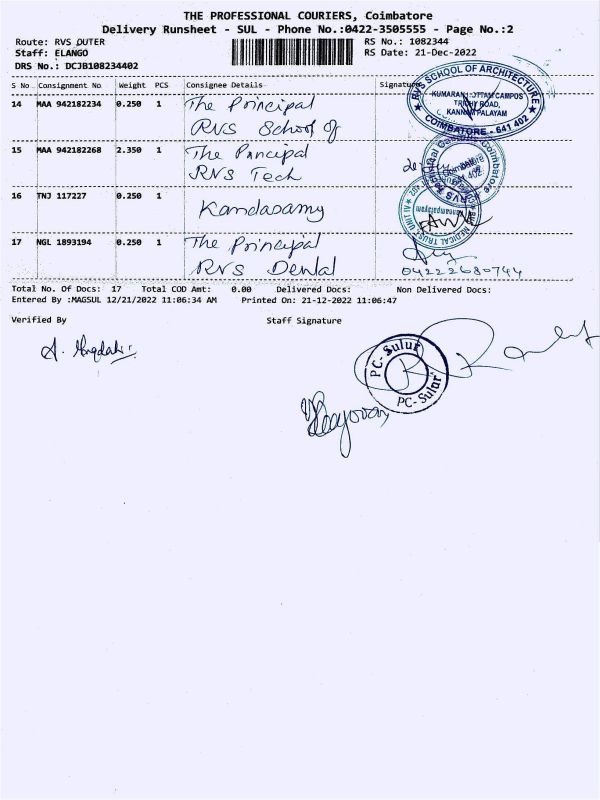 THE PROFESSIONAL COURIERS, Coimbatore
Delivery Runsheet - SUL - Phone No.:0422-3505555 - Page No.:2
Route: RVS OUTER RS No.: 1082344
Staff: ELANGO RS Date: 21-Dec-2022
DRS No.: DCJB108234402
S No Consignment No Weight PCS Consignee Details Signature
14 MAA 942182234 0.250 1 The Principal
RVS School of
RVS SCHOOL OF ARCHITECTURE
CAMPUS
TRICHY ROAD,
KANNAM PALAYAM
COIMBATORE - 641 402
15 MAA 942182268 2.350 1 The Principal
RVS Tech
Coimbatore
16 TNJ 117227 0.250 1 Kandasamy
17 NGL 1893194 0.250 1 The Principal
RVS Dental
04222680744
Total No. Of Docs: 17 Total COD Amt: 0.00 Delivered Docs: Non Delivered Docs:
Entered By :MAGSUL 12/21/2022 11:06:34 AM Printed On: 21-12-2022 11:06:47
Verified By Staff Signature
PC- Sulur
PC- Sulur